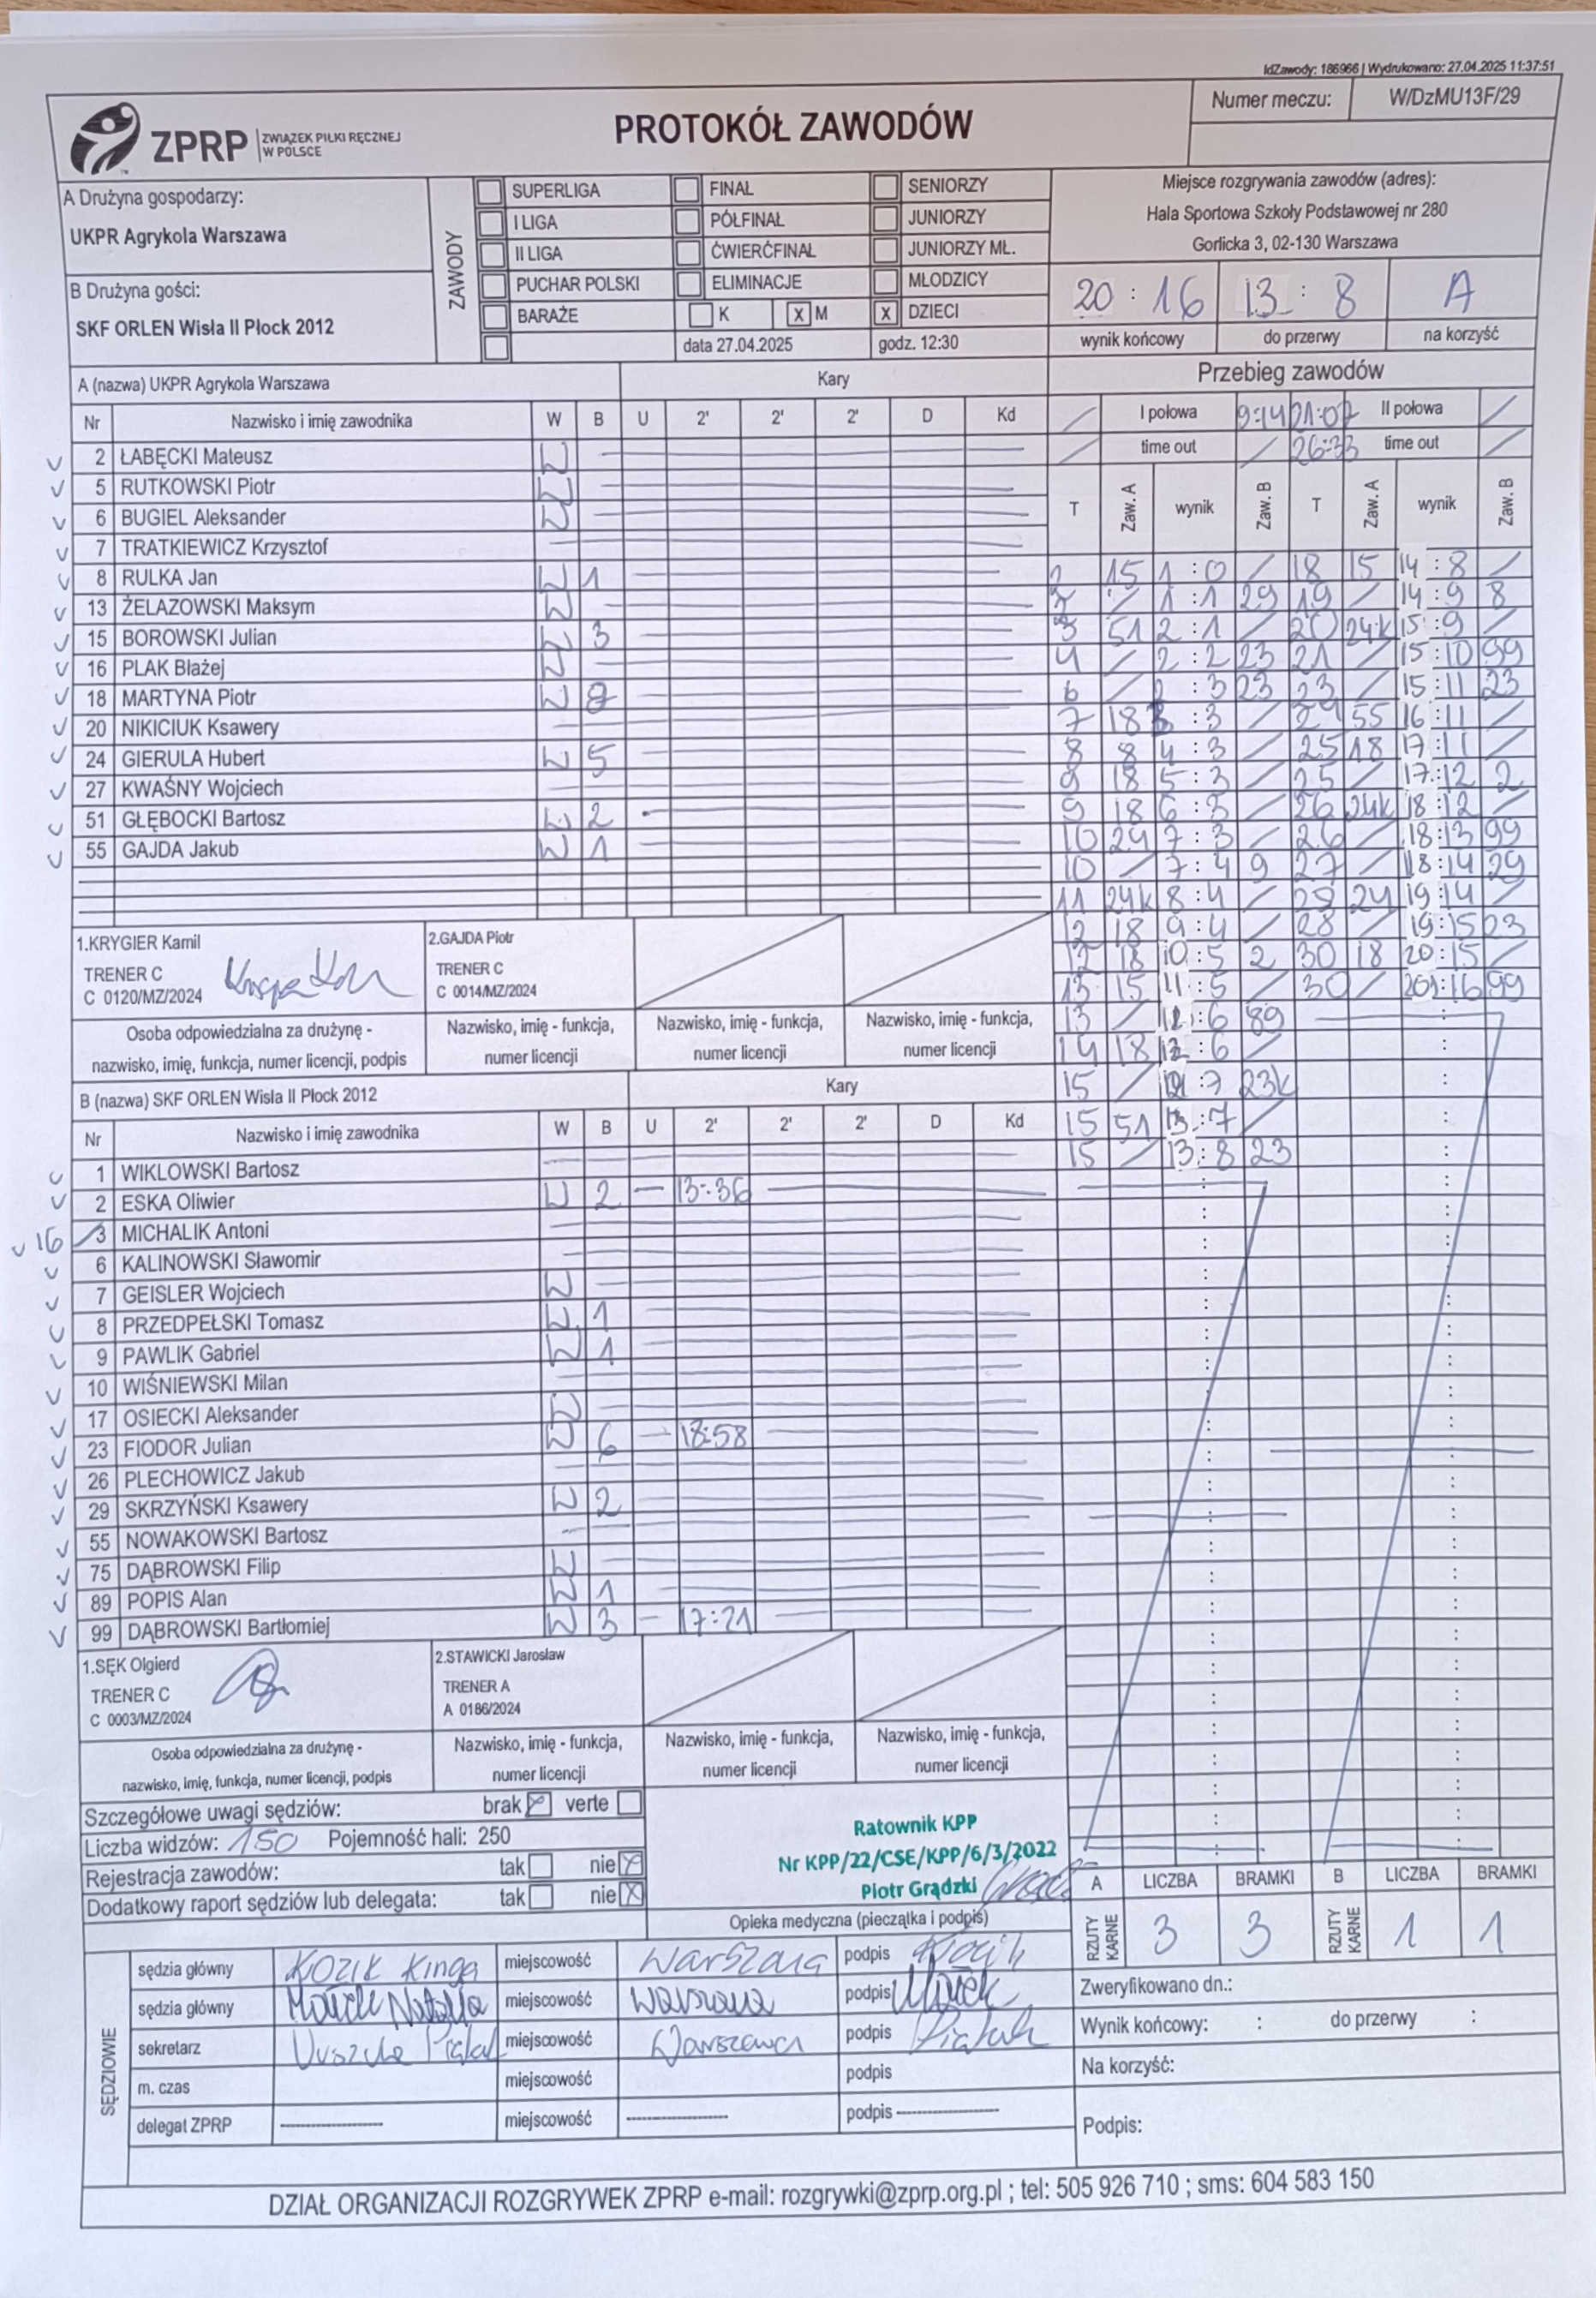 IdZawody: 186966 | Wydrukowano: 27.04.2025 11:37:51
ZPRP ZWIĄZEK PIŁKI RĘCZNEJ W POLSCE
PROTOKÓŁ ZAWODÓW
Numer meczu: W/DzMU13F/29
A Drużyna gospodarzy:
UKPR Agrykola Warszawa
B Drużyna gości:
SKF ORLEN Wisła II Płock 2012
ZAWODY
SUPERLIGA FINAŁ SENIORZY
I LIGA PÓŁFINAŁ JUNIORZY
II LIGA ĆWIERĆFINAŁ JUNIORZY MŁ.
PUCHAR POLSKI ELIMINACJE MŁODZICY
BARAŻE K X M X DZIECI
data 27.04.2025 godz. 12:30
Miejsce rozgrywania zawodów (adres):
Hala Sportowa Szkoły Podstawowej nr 280
Gorlicka 3, 02-130 Warszawa
20 : 16 13 : 8 A
wynik końcowy do przerwy na korzyść
A (nazwa) UKPR Agrykola Warszawa Kary
Nr Nazwisko i imię zawodnika W B U 2' 2' 2' D Kd
2 ŁABĘCKI Mateusz W
5 RUTKOWSKI Piotr W
6 BUGIEL Aleksander W
7 TRATKIEWICZ Krzysztof
8 RULKA Jan W 1
13 ŻELAZOWSKI Maksym W
15 BOROWSKI Julian W 3
16 PLAK Błażej W
18 MARTYNA Piotr W 8
20 NIKICIUK Ksawery
24 GIERULA Hubert W 5
27 KWAŚNY Wojciech
51 GŁĘBOCKI Bartosz W 2
55 GAJDA Jakub W 1
1.KRYGIER Kamil
TRENER C
C 0120/MZ/2024
2.GAJDA Piotr
TRENER C
C 0014/MZ/2024
Osoba odpowiedzialna za drużynę -
nazwisko, imię, funkcja, numer licencji, podpis
Nazwisko, imię - funkcja,
numer licencji
Nazwisko, imię - funkcja,
numer licencji
Nazwisko, imię - funkcja,
numer licencji
B (nazwa) SKF ORLEN Wisła II Płock 2012 Kary
Nr Nazwisko i imię zawodnika W B U 2' 2' 2' D Kd
1 WIKLOWSKI Bartosz
2 ESKA Oliwier W 2 13:36
16 3 MICHALIK Antoni
6 KALINOWSKI Sławomir
7 GEISLER Wojciech W
8 PRZEDPEŁSKI Tomasz W 1
9 PAWLIK Gabriel W 1
10 WIŚNIEWSKI Milan
17 OSIECKI Aleksander W
23 FIODOR Julian W 6 18:58
26 PLECHOWICZ Jakub
29 SKRZYŃSKI Ksawery W 2
55 NOWAKOWSKI Bartosz
75 DĄBROWSKI Filip W
89 POPIS Alan W 1
99 DĄBROWSKI Bartłomiej W 3 17:21
1.SĘK Olgierd
TRENER C
C 0003/MZ/2024
2.STAWICKI Jarosław
TRENER A
A 0186/2024
Osoba odpowiedzialna za drużynę -
nazwisko, imię, funkcja, numer licencji, podpis
Nazwisko, imię - funkcja,
numer licencji
Nazwisko, imię - funkcja,
numer licencji
Nazwisko, imię - funkcja,
numer licencji
Przebieg zawodów
I połowa 9:14 21:07 II połowa
time out 26:33 time out
T Zaw. A wynik Zaw. B T Zaw. A wynik Zaw. B
2 15 1 : 0 / 18 15 14 : 8 /
/ 1 : 1 29 19 / 14 : 9 8
3 51 2 : 1 / 20 24k 15 : 9 /
4 / 2 : 2 23 21 / 15 : 10 99
6 / 2 : 3 23 23 / 15 : 11 23
7 18 3 : 3 / 24 55 16 : 11 /
8 8 4 : 3 / 25 18 17 : 11 /
9 18 5 : 3 / 25 / 17 : 12 2
9 18 6 : 3 / 26 24k 18 : 12 /
10 24 7 : 3 / 26 / 18 : 13 99
10 / 7 : 4 9 27 / 18 : 14 29
11 24k 8 : 4 / 28 24 19 : 14 /
12 18 9 : 4 / 28 / 19 : 15 23
12 18 10 : 5 2 30 18 20 : 15 /
13 15 11 : 5 / 30 / 20 : 16 99
13 / 11 : 6 89
14 18 12 : 6 /
15 / 12 : 7 23k
15 51 13 : 7 /
15 / 13 : 8 23
Szczegółowe uwagi sędziów: brak verte
Liczba widzów: 150 Pojemność hali: 250
Rejestracja zawodów: tak nie X
Dodatkowy raport sędziów lub delegata: tak nie X
Ratownik KPP
Nr KPP/22/CSE/KPP/6/3/2022
Piotr Grądzki
Opieka medyczna (pieczątka i podpis)
A LICZBA BRAMKI B LICZBA BRAMKI
RZUTY KARNE 3 3 RZUTY KARNE 1 1
SĘDZIOWIE
sędzia główny Kozik Kinga miejscowość Warszawa podpis
sędzia główny Natalia miejscowość Warszawa podpis
sekretarz miejscowość Warszawa podpis
m. czas miejscowość podpis
delegat ZPRP miejscowość podpis
Zweryfikowano dn.:
Wynik końcowy: : do przerwy :
Na korzyść:
Podpis:
DZIAŁ ORGANIZACJI ROZGRYWEK ZPRP e-mail: rozgrywki@zprp.org.pl ; tel: 505 926 710 ; sms: 604 583 150